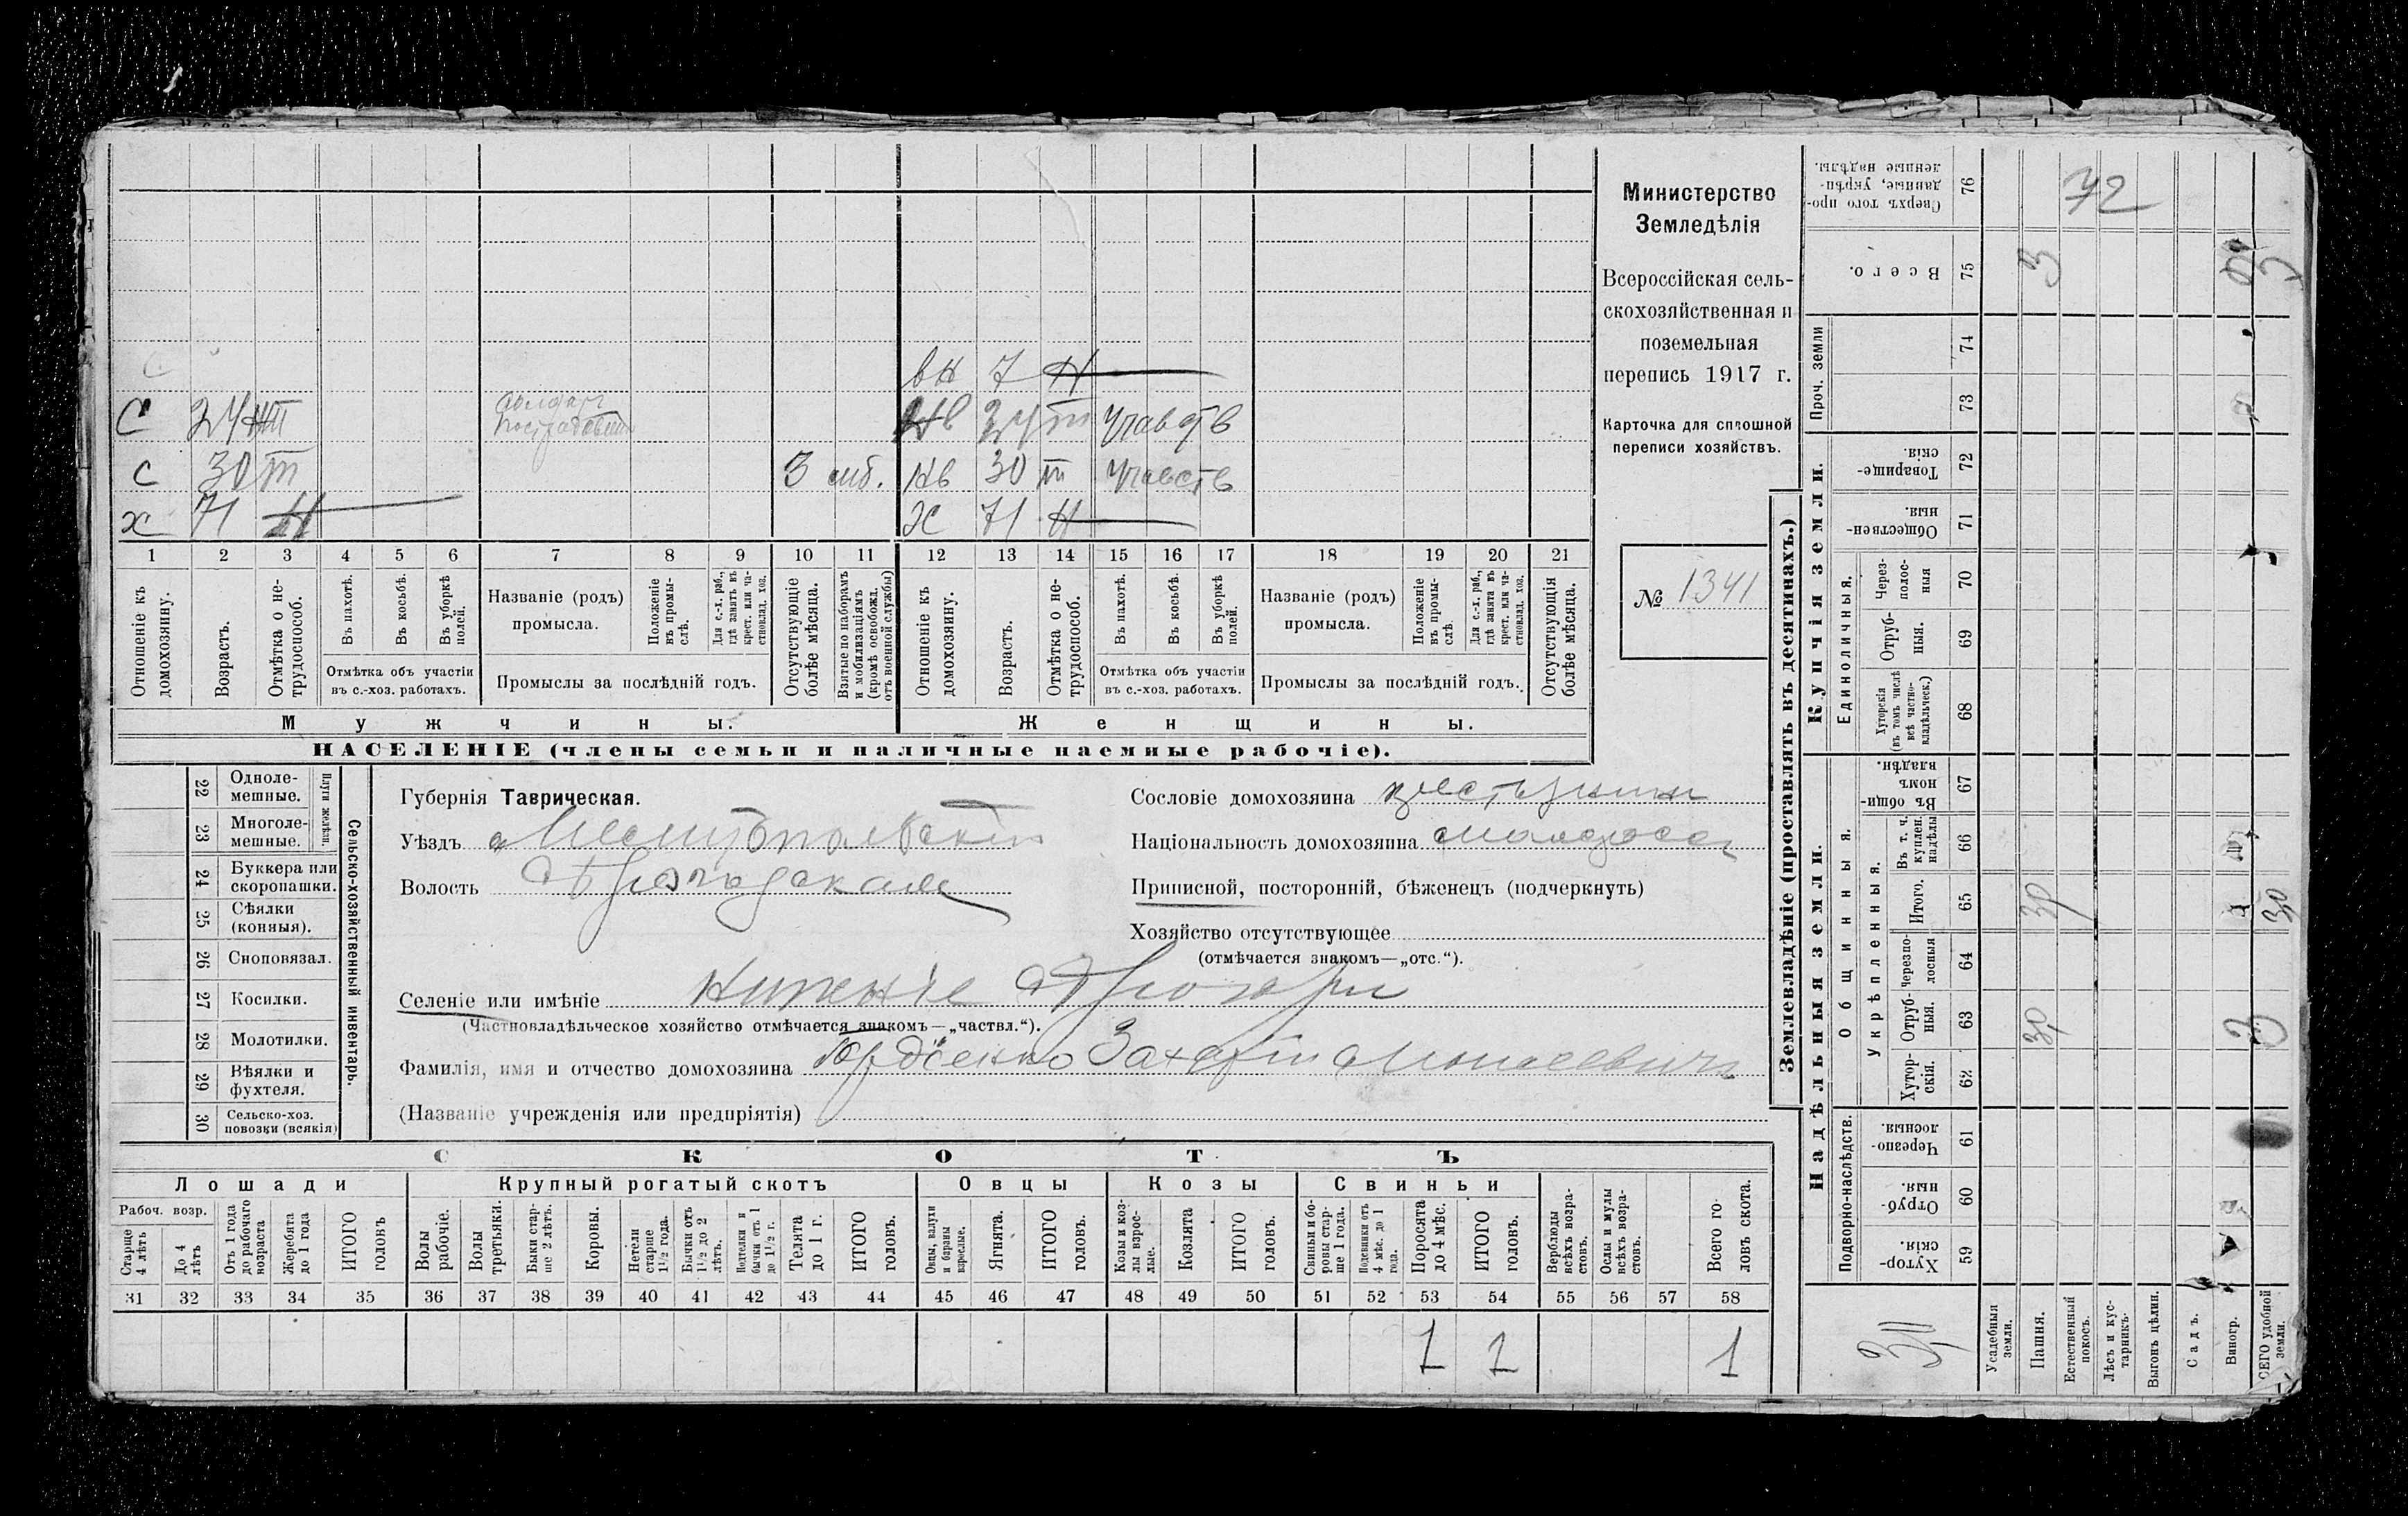 Министерство
Земледѣлія
Всероссійская сель-
скохозяйственная и
поземельная
перепись 1917 г.
Карточка для сплошной
переписи хозяйствъ.
№ 1341
вн 7 Н
С 24
С 30 т 3 моб. Нв 30 т Участв
х 71 Н Ж 71 Н
1 2 3 4 5 6 7 8 9 10 11 12 13 14 15 16 17 18 19 20 21
Отношеніе къ домохозяину.
Возрастъ.
Отмѣтка о не-трудоспособ.
Въ пахотѣ.
Въ косьбѣ.
Въ уборкѣ полей.
Отмѣтка объ участіи въ с.-хоз. работахъ.
Названіе (родъ) промысла.
Положеніе въ промы-слѣ.
Для с.-х. раб., гдѣ занятъ въ крест. или ча-стновлад. хоз.
Промыслы за послѣдній годъ.
Отсутствующіе болѣе мѣсяца.
Взятые по наборамъ и мобилизаціямъ (кромѣ освобожд. отъ военной службы)
Отношеніе къ домохозяину.
Возрастъ.
Отмѣтка о не-трудоспособ.
Въ пахотѣ.
Въ косьбѣ.
Въ уборкѣ полей.
Отмѣтка объ участіи въ с.-хоз. работахъ.
Названіе (родъ) промысла.
Положеніе въ промы-слѣ.
Для с.-х. раб., гдѣ занята въ крест. или ча-стновлад. хоз.
Промыслы за послѣдній годъ.
Отсутствующія болѣе мѣсяца.
Мужчины.
Женщины.
НАСЕЛЕНІЕ (члены семьи и наличные наемные рабочіе).
22 Одноле-мешные.
23 Многоле-мешные.
Плуги желѣзн.
24 Буккера или скоропашки.
25 Сѣялки (конныя).
26 Сноповязал.
27 Косилки.
28 Молотилки.
29 Вѣялки и фухтеля.
30 Сельско-хоз. повозки (всякія)
Сельско-хозяйственный инвентарь.
Губернія Таврическая.
Уѣздъ Мелитопольскій
Волость
Сословіе домохозяина
Національность домохозяина малоросс
Приписной, посторонній, бѣженецъ (подчеркнуть)
Хозяйство отсутствующее
(отмѣчается знакомъ—„отс.“).
Селеніе или имѣніе Нижніе
(Частновладѣльческое хозяйство отмѣчается знакомъ—„частвл.“).
Фамилія, имя и отчество домохозяина Захарій Моисеевичъ
(Названіе учрежденія или предпріятія)
СКОТЪ
Лошади
Крупный рогатый скотъ
Овцы
Козы
Свиньи
Рабоч. возр.
Старше 4 лѣтъ
До 4 лѣтъ
Отъ 1 года до рабочаго возраста
Жеребята до 1 года
ИТОГО головъ
Волы рабочіе.
Волы третьяки.
Быки стар-ше 2 лѣтъ.
Коровы.
Нетели старше 1½ года.
Бычки отъ 1½ до 2 лѣтъ.
Подтелки и бычки отъ 1 до 1½ г.
Телята до 1 г.
ИТОГО головъ.
Овцы, валухи и бараны взрослые.
Ягнята.
ИТОГО головъ.
Козы и коз-лы взрос-лые.
Козлята
ИТОГО головъ.
Свиньи и бо-ровы стар-ше 1 года.
Подсвинки отъ 4 мѣс. до 1 года.
Поросята до 4 мѣс.
ИТОГО головъ.
Верблюды всѣхъ возра-стовъ.
Ослы и мулы всѣхъ возра-стовъ.
Всего го-ловъ скота.
31 32 33 34 35 36 37 38 39 40 41 42 43 44 45 46 47 48 49 50 51 52 53 54 55 56 57 58
1 1 1
Землевладѣніе (проставлять въ десятинахъ.)
Надѣльныя земли.
Купчія земли.
Проч. земли
Подворно-наслѣдств.
Общинныя.
Укрѣпленныя.
Единоличныя.
Сверхъ того про-данные, укрѣп-ленные надѣлы. 76 72
Всего. 75 3
74
73
Товарище-скія. 72
Обществен-ныя. 71
Через-полос-ныя 70
Отруб-ныя. 69
Хуторскія (въ томъ числѣ всѣ частно-владѣльческ.) 68
Въ общин-номъ владѣн. 67
Въ т. ч. куплен. надѣлы 66
Итого. 65 30 30
Черезпо-лосныя 64
Отруб-ныя. 63 30
Хутор-скія. 62
Черезпо-лосныя. 61
Отруб-ныя. 60
Хутор-скія. 59
Усадебныя земли.
Пашня.
Естественный покосъ.
Лѣсъ и кус-тарникъ.
Выгонъ цѣлин.
Садъ.
Виногр.
СЕГО удобной земли.